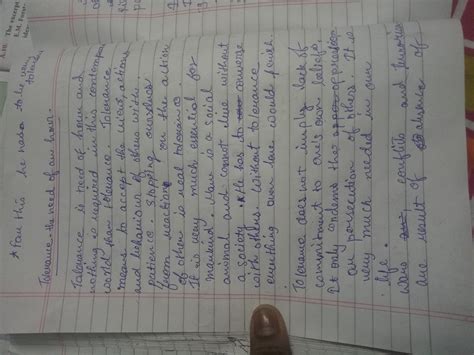 * For this he has to be very
Tolerance the need of an hour.
Tolerance is need of hour and
nothing is required in this contempor
world than tolerance. Tolerance
means to accept the views, actions
and behaviour of others with
patience. Stopping ourselves
from reacting on the action
of others is real tolerance.
It is very much essential for
mankind. Man is a social
animal and cannot live without
a society. He has to converse
with others. Without tolerance
everything
Tolerance does not imply lack of
commitment to one's own beliefs.
It only condems the oppression
or persecution of others. It is
very much needed in our
life.
wars conflicts and terrorism
are result of absence of